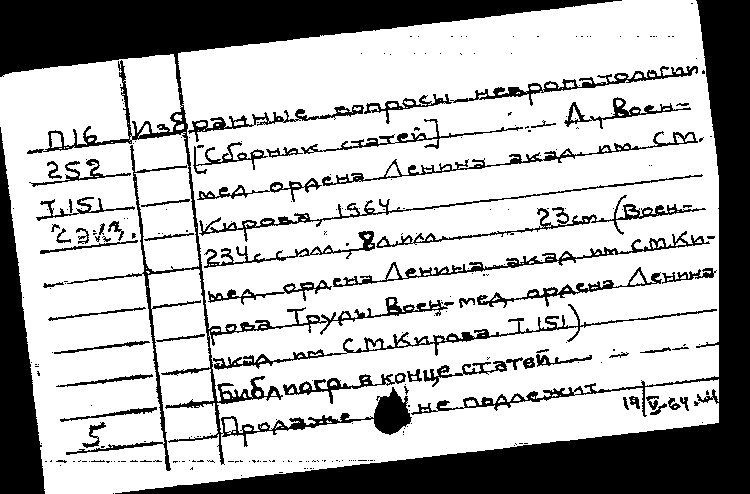 П16 Избранные вопросы невропатологии.
252 [Сборник статей]. Л., Воен-
Т.151 мед. ордена Ленина акад. им. С.М.
2 экз. Кирова, 1964.
234 с. с илл.; 8 л. илл. 23 см. (Воен-
мед. ордена Ленина акад. им С.М.Ки-
рова Труды Воен-мед. ордена Ленина
акад. им С.М.Кирова. Т.151).
Библиогр. в конце статей.
5 Продаже не подлежит.
19/V-64.